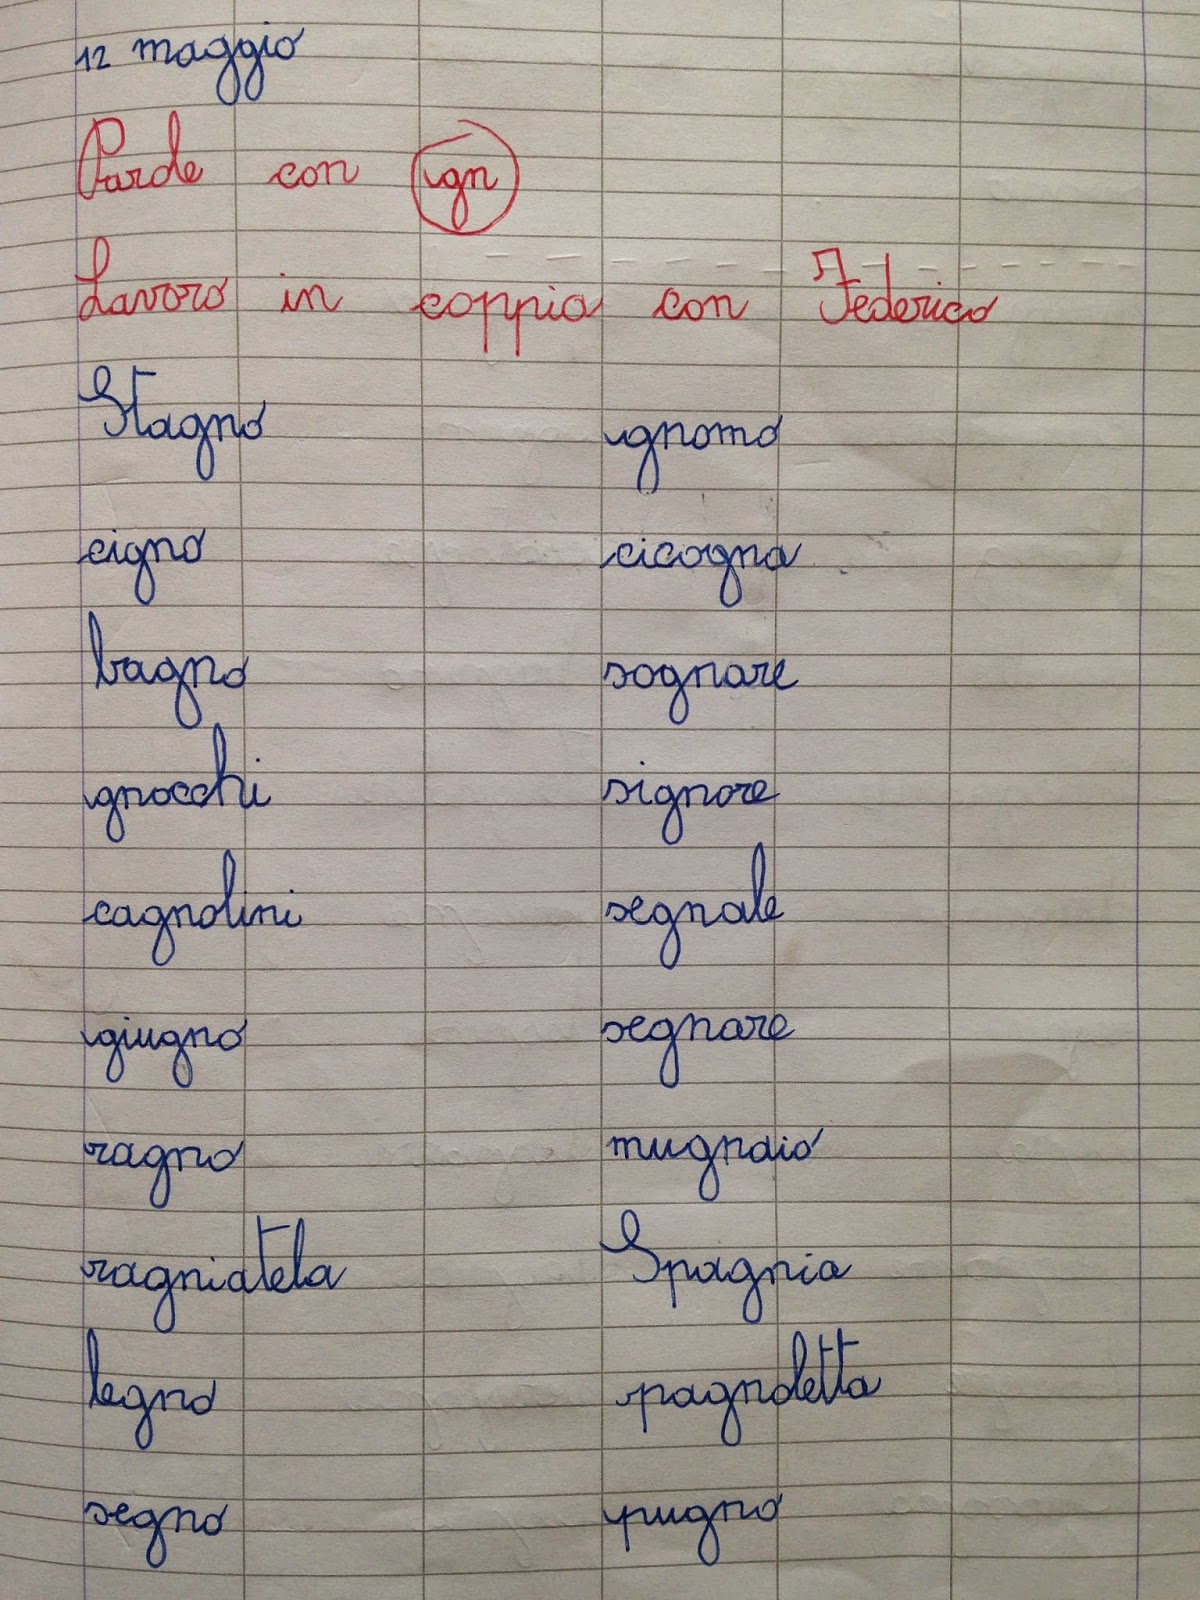 12 maggio
Parole con gn
Lavoro in coppia con Federico
Stagno
cigno
bagno
gnocchi
cagnolini
giugno
ragno
ragniatela
legno
segno
gnomo
cicogna
sognare
signore
segnale
segnare
mugnaio
Spagnia
pagnoletta
pugno